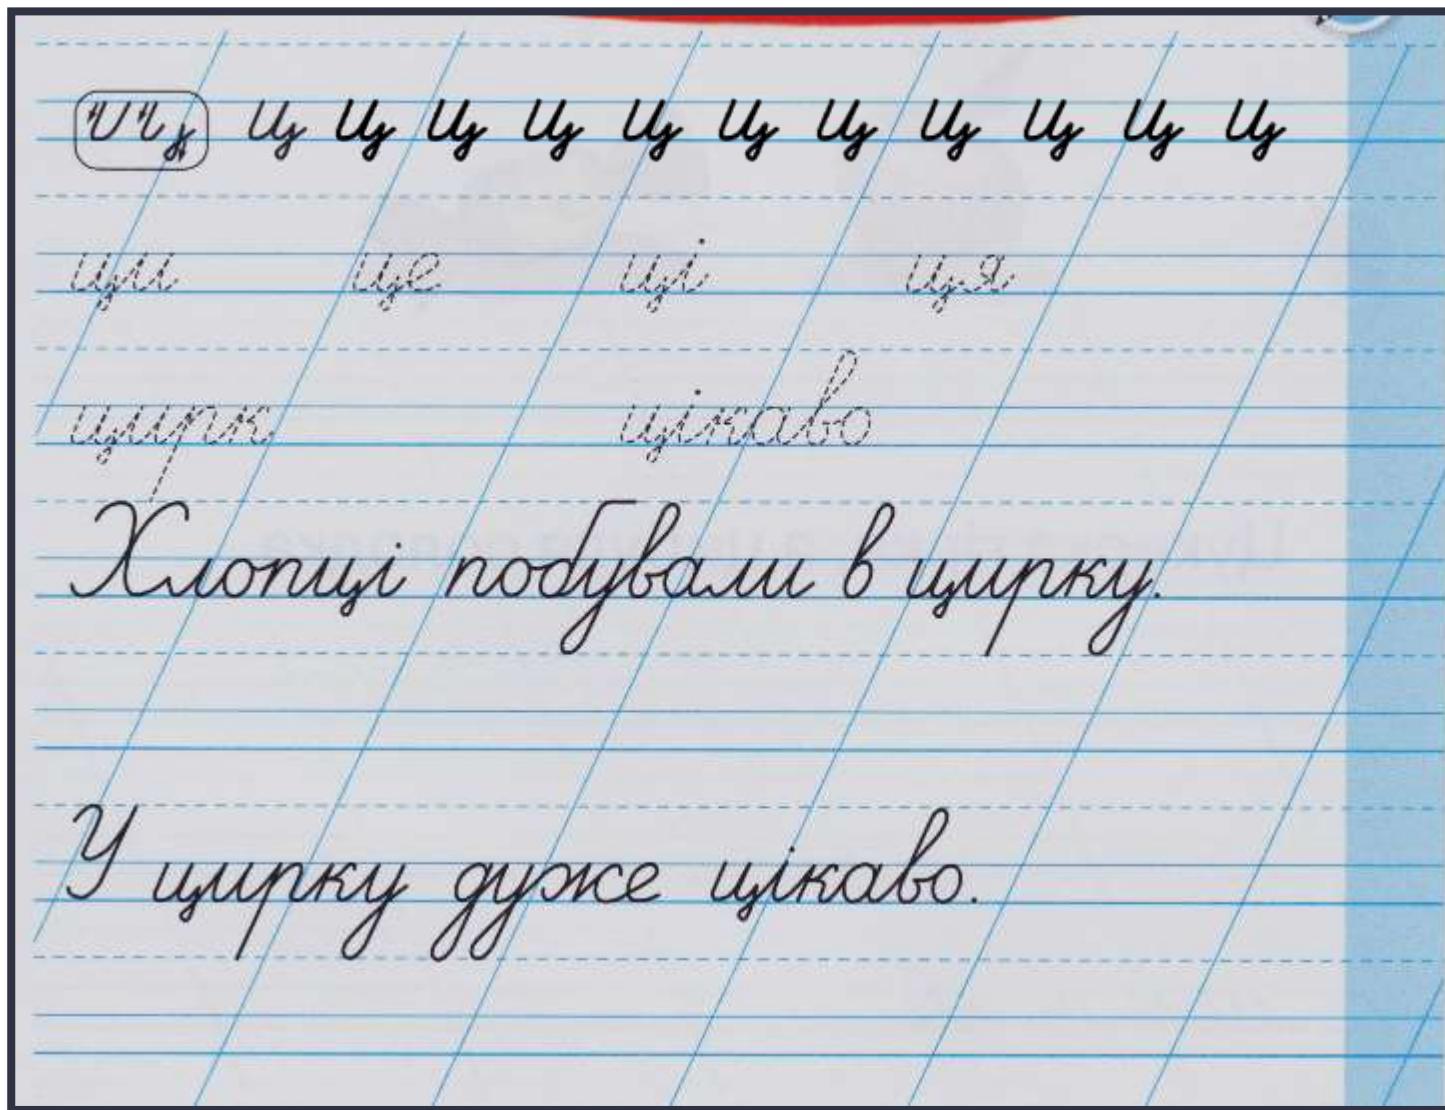 ц ц ц ц ц ц ц ц ц ц ц
ци це ці ця
цирк цікаво
Хлопці побували в цирку.
У цирку дуже цікаво.